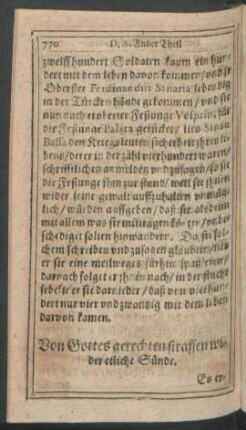 770 D. A. Ander Theil
zwelffhundert Soldaten kaum ein hun-
dert mit dem leben davon kommen/ und jr
Oberster Ferdinandus Sanaria lebendig
in der Türcken hände gekommen/ und sie
nun nach eroberter Festunge Vesprin, für
die Festunge Palotta gerücket/ lies Sinan
Bassa den Kriegsleuten sicherheit jhres le-
bens/ derer in der zahl vierhundert waren/
schrifftlichen anmelden und zusagen/ so sie
die Festunge jhm zur stund/ weil sie jhnen
wider seine gewalt auffzuhalten unmüg-
lich/ würden auffgeben/ daß sie alsdenn
mit allem was sie mittragen köndten/ unbe-
schediget solten hinwandern. Da sie sol-
chem schreiben und zusagen glaubten/ ließ
er sie eine meilweges fürhin spatzieren/
darnach folget er jhnen nach/ in der flucht
lebete er sie darnieder/ daß von vierhun-
dert nur vier und zwantzig mit dem leben
darvon kamen.
Von Gottes gerechten straffen wi-
der etliche Sünde.
Es er-